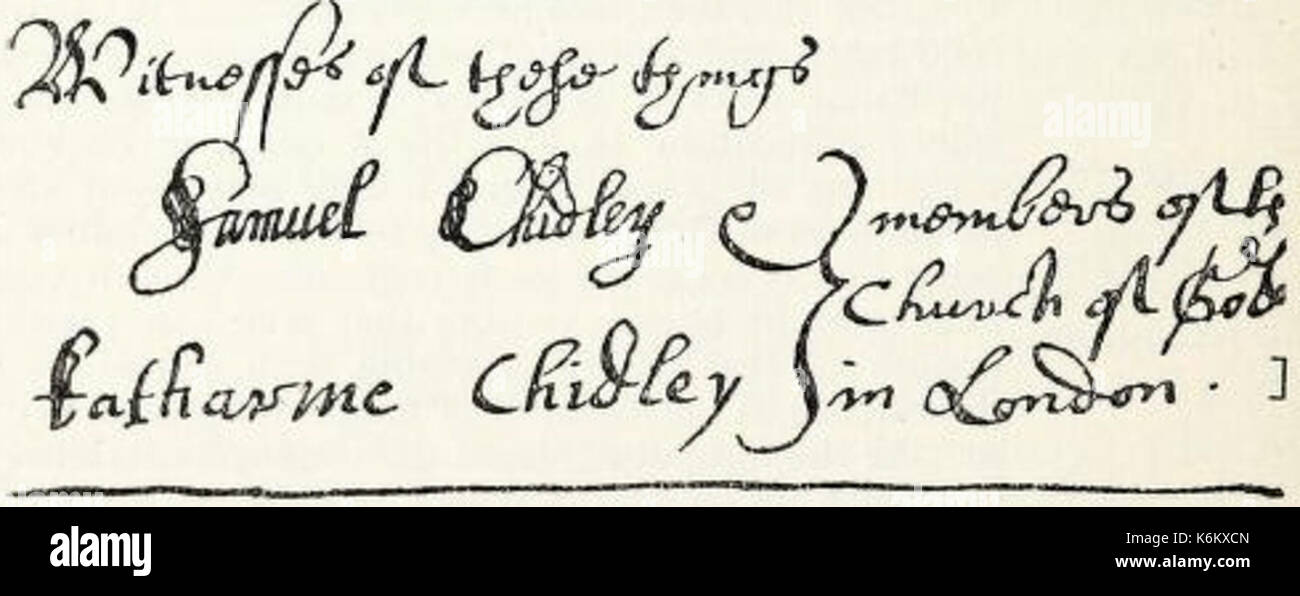 Witnesses of these things
Samuel Chidley } members of the
Church of God
Katharine Chidley } in London . ]
alamy
alamy
a
a
alamy
Image ID: K6KXCN
www.alamy.com